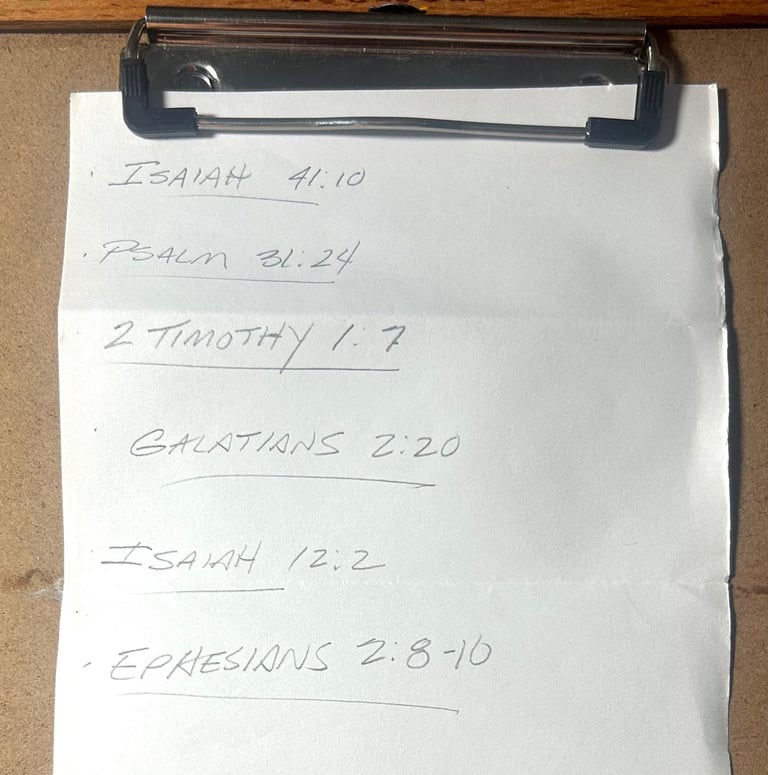 · ISAIAH 41:10
· PSALM 31:24
2 TIMOTHY 1:7
GALATIANS 2:20
ISAIAH 12:2
· EPHESIANS 2:8-10